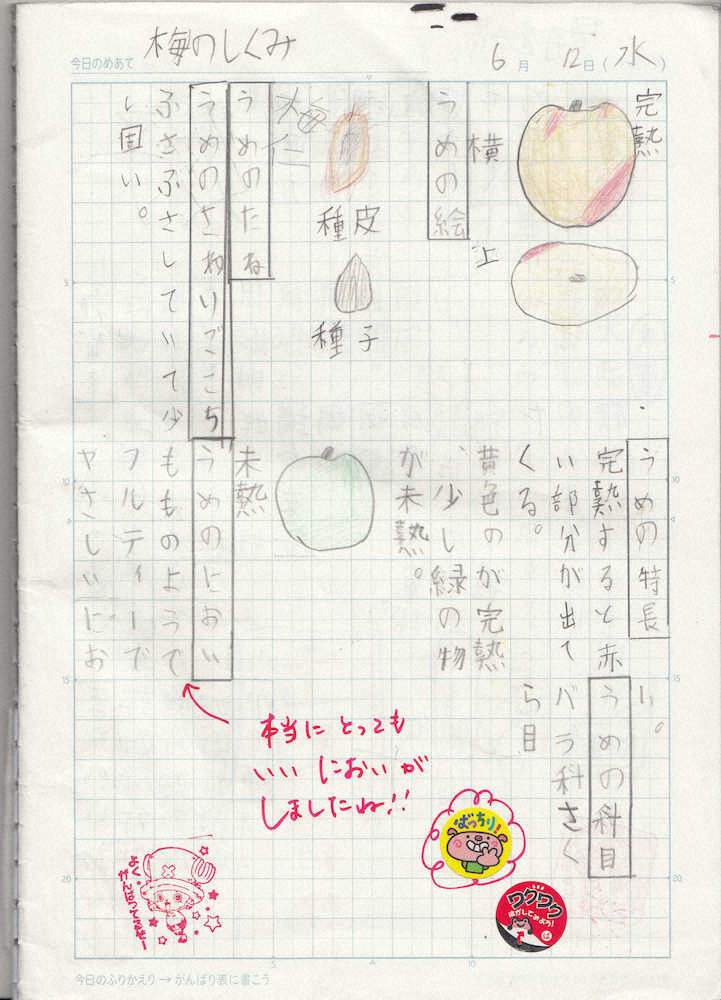 今日のめあて 梅のしくみ 6月12日(水)
完熟
横
上
うめの絵
種皮
種子
梅仁
うめのたね
うめのさわりごこち
ふさふさしていて少
し固い。
うめの特長
完熟すると赤
い部分が出て
くる。
黄色のが完熟
、少し緑の物
が未熟。
未熟
うめのにおい
もものようで
フルティーで
ヤさしいにお
い。
うめの科目
バラ科さく
ら目
本当にとっても
いいにおいが
しましたね!!
ばっちり!
ワクワク
はがしてみよう!
よく
がんばってるぜー
今日のふりかえり → がんばり表に書こう